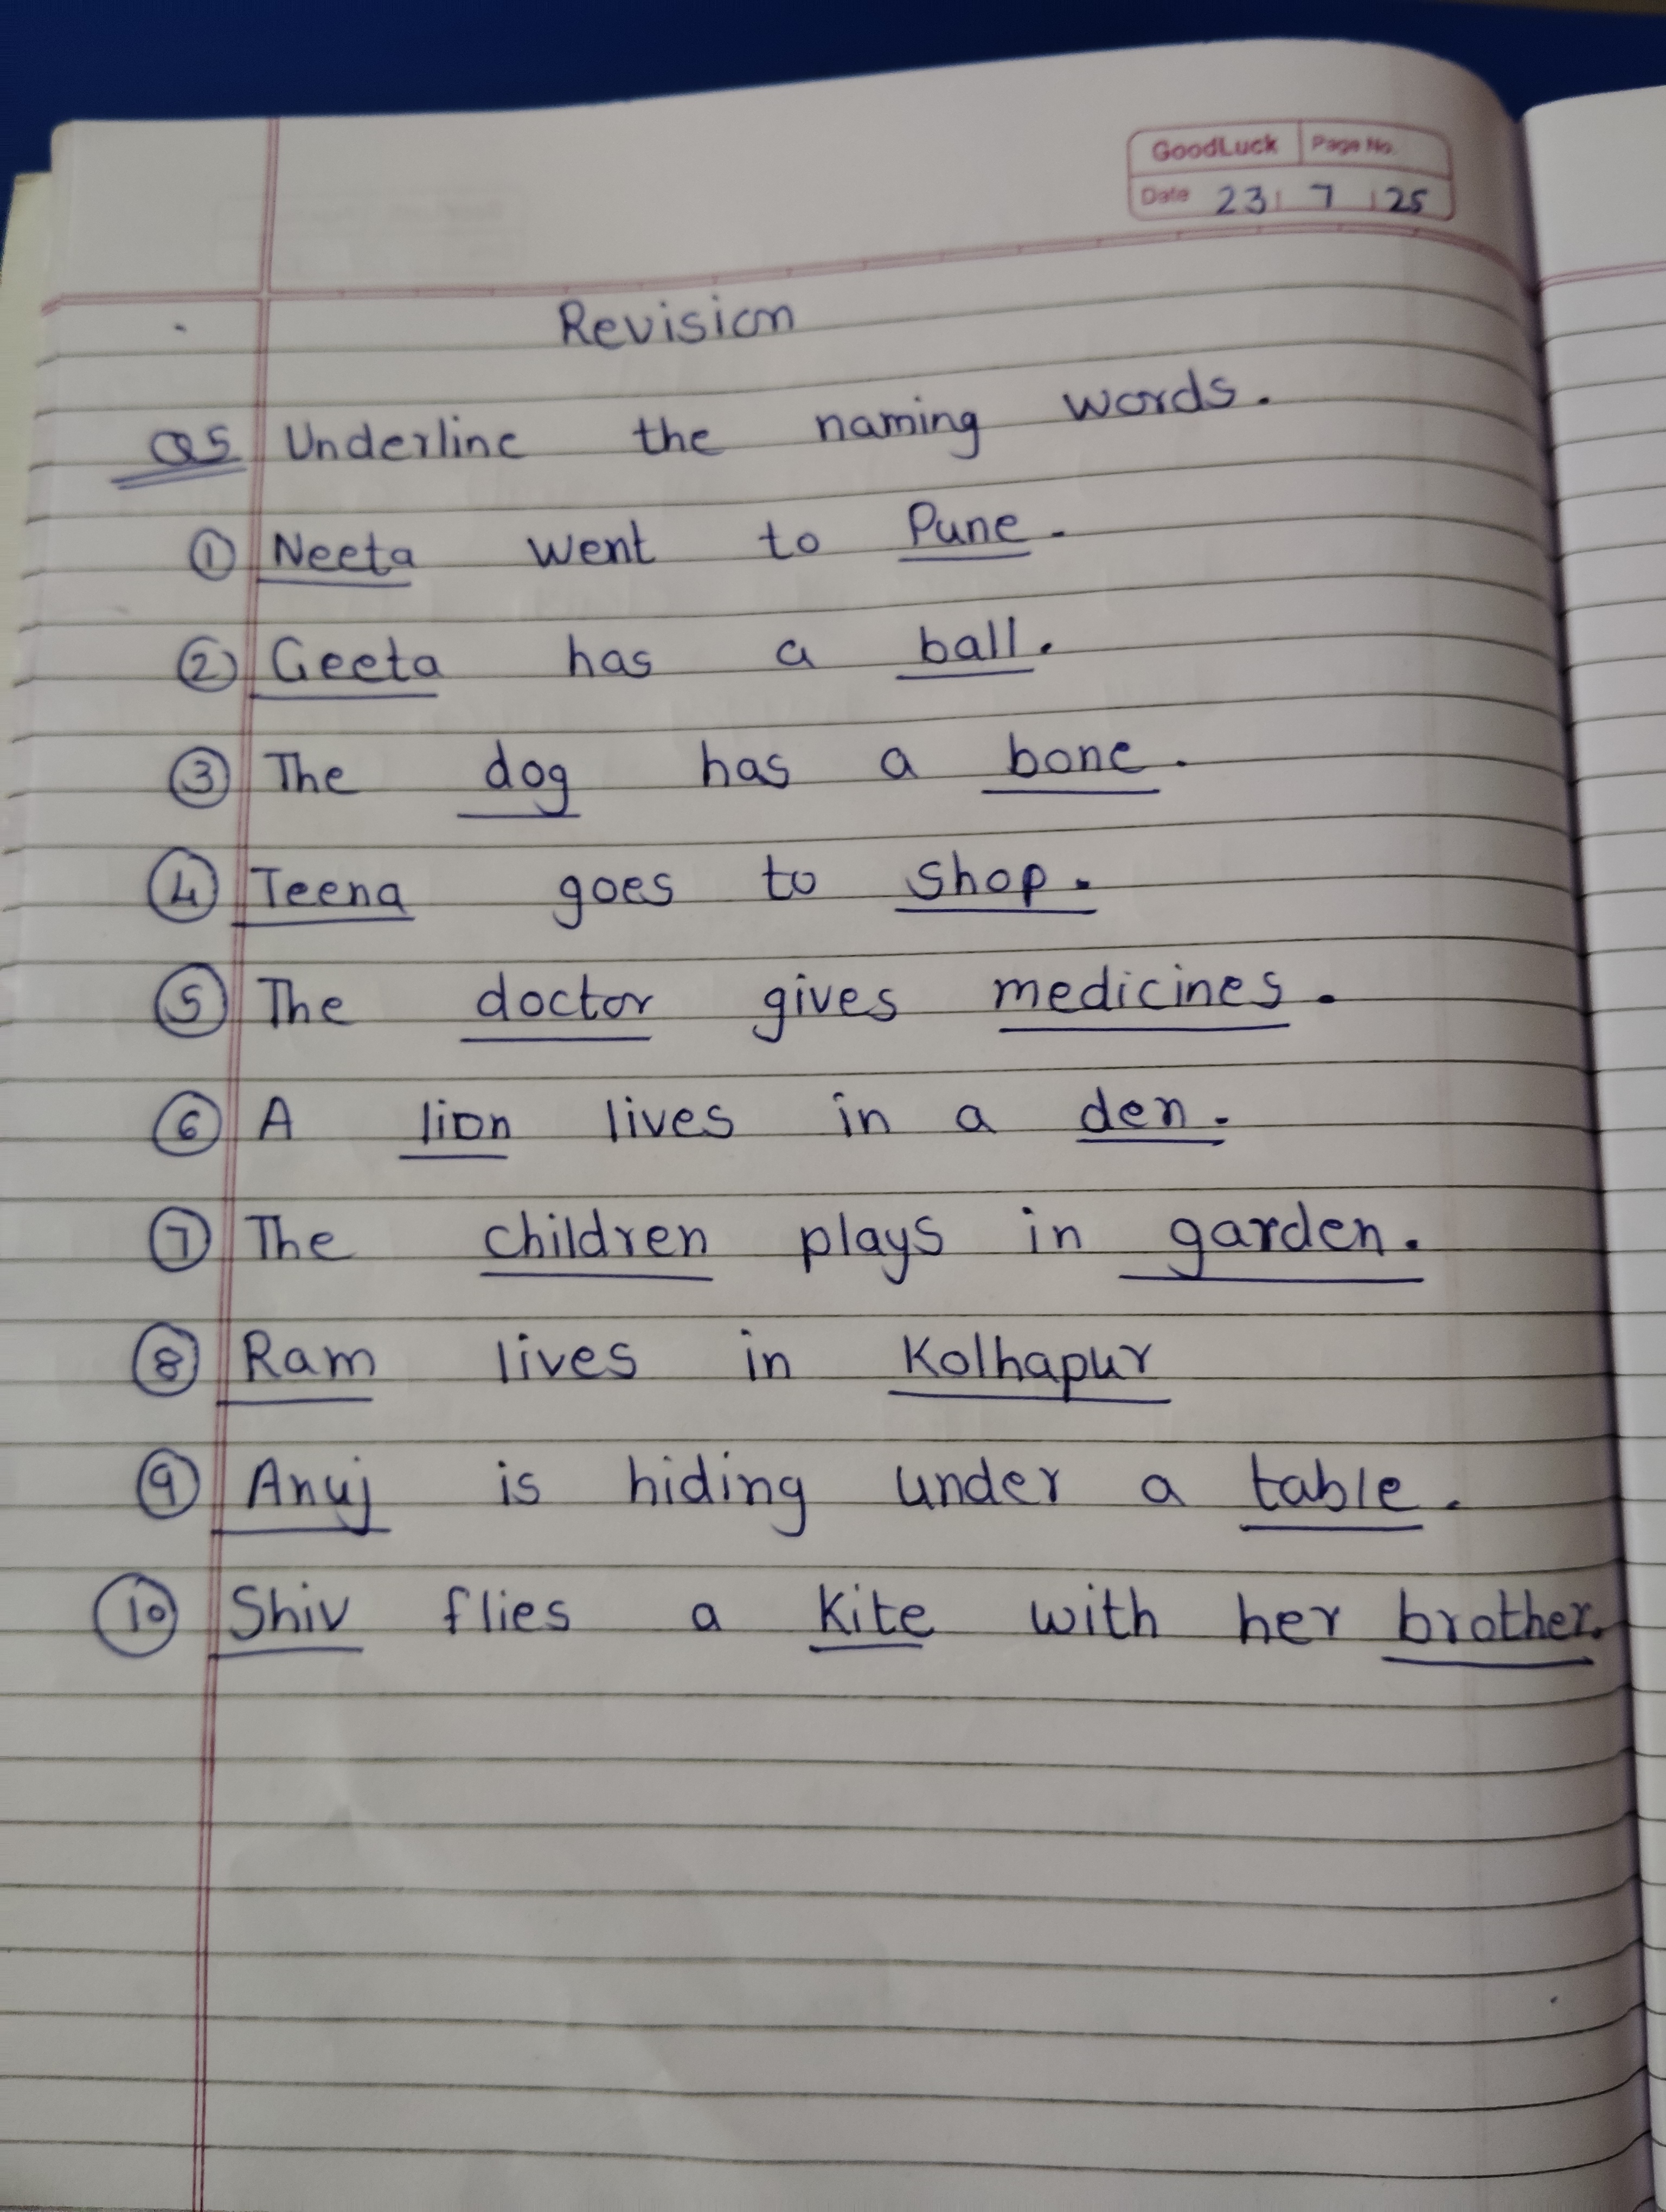 GoodLuck Page No.
Date 23 7 25
Revision
Q5 Underline the naming words.
① Neeta went to Pune.
② Geeta has a ball.
③ The dog has a bone.
④ Teena goes to shop.
⑤ The doctor gives medicines.
⑥ A lion lives in a den.
⑦ The children plays in garden.
⑧ Ram lives in Kolhapur
⑨ Anuj is hiding under a table.
⑩ Shiv flies a kite with her brother.